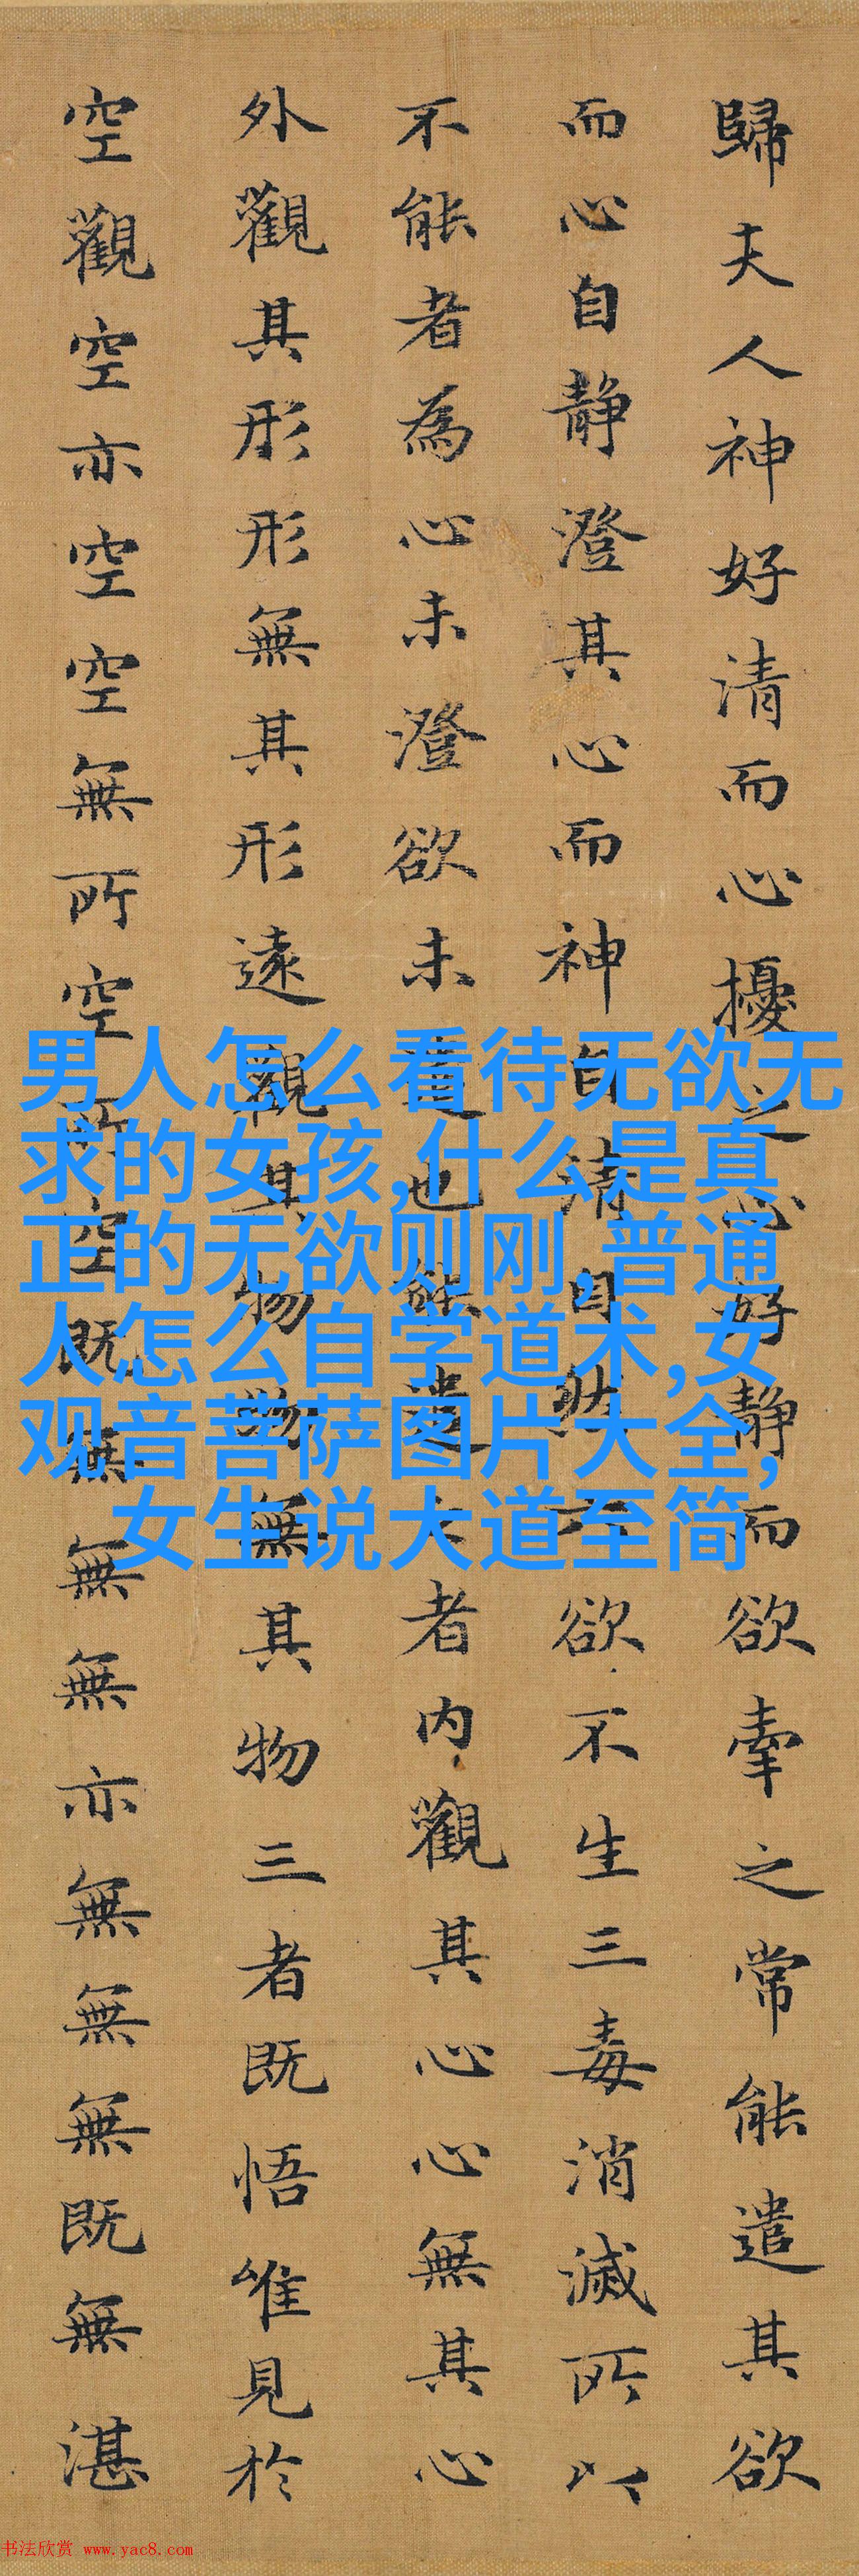 歸夫人神好清而心擾之心好静而欲牽之常能遣其欲
而心自静澄其心而神自清自然六欲不生三毒消滅所以
不能者為心未澄欲未遣也能遣之者内觀其心心無其心
外觀其形形無其形遠觀其物物無其物三者既悟唯見於
空觀空亦空空無所空所空既無無無亦無無無既無湛
男人怎么看待无欲无
求的女孩,什么是真
正的无欲则刚,普通
人怎么自学道术,女
观音菩萨图片大全,
女生说大道至简
书法欣赏 www.yac8.com